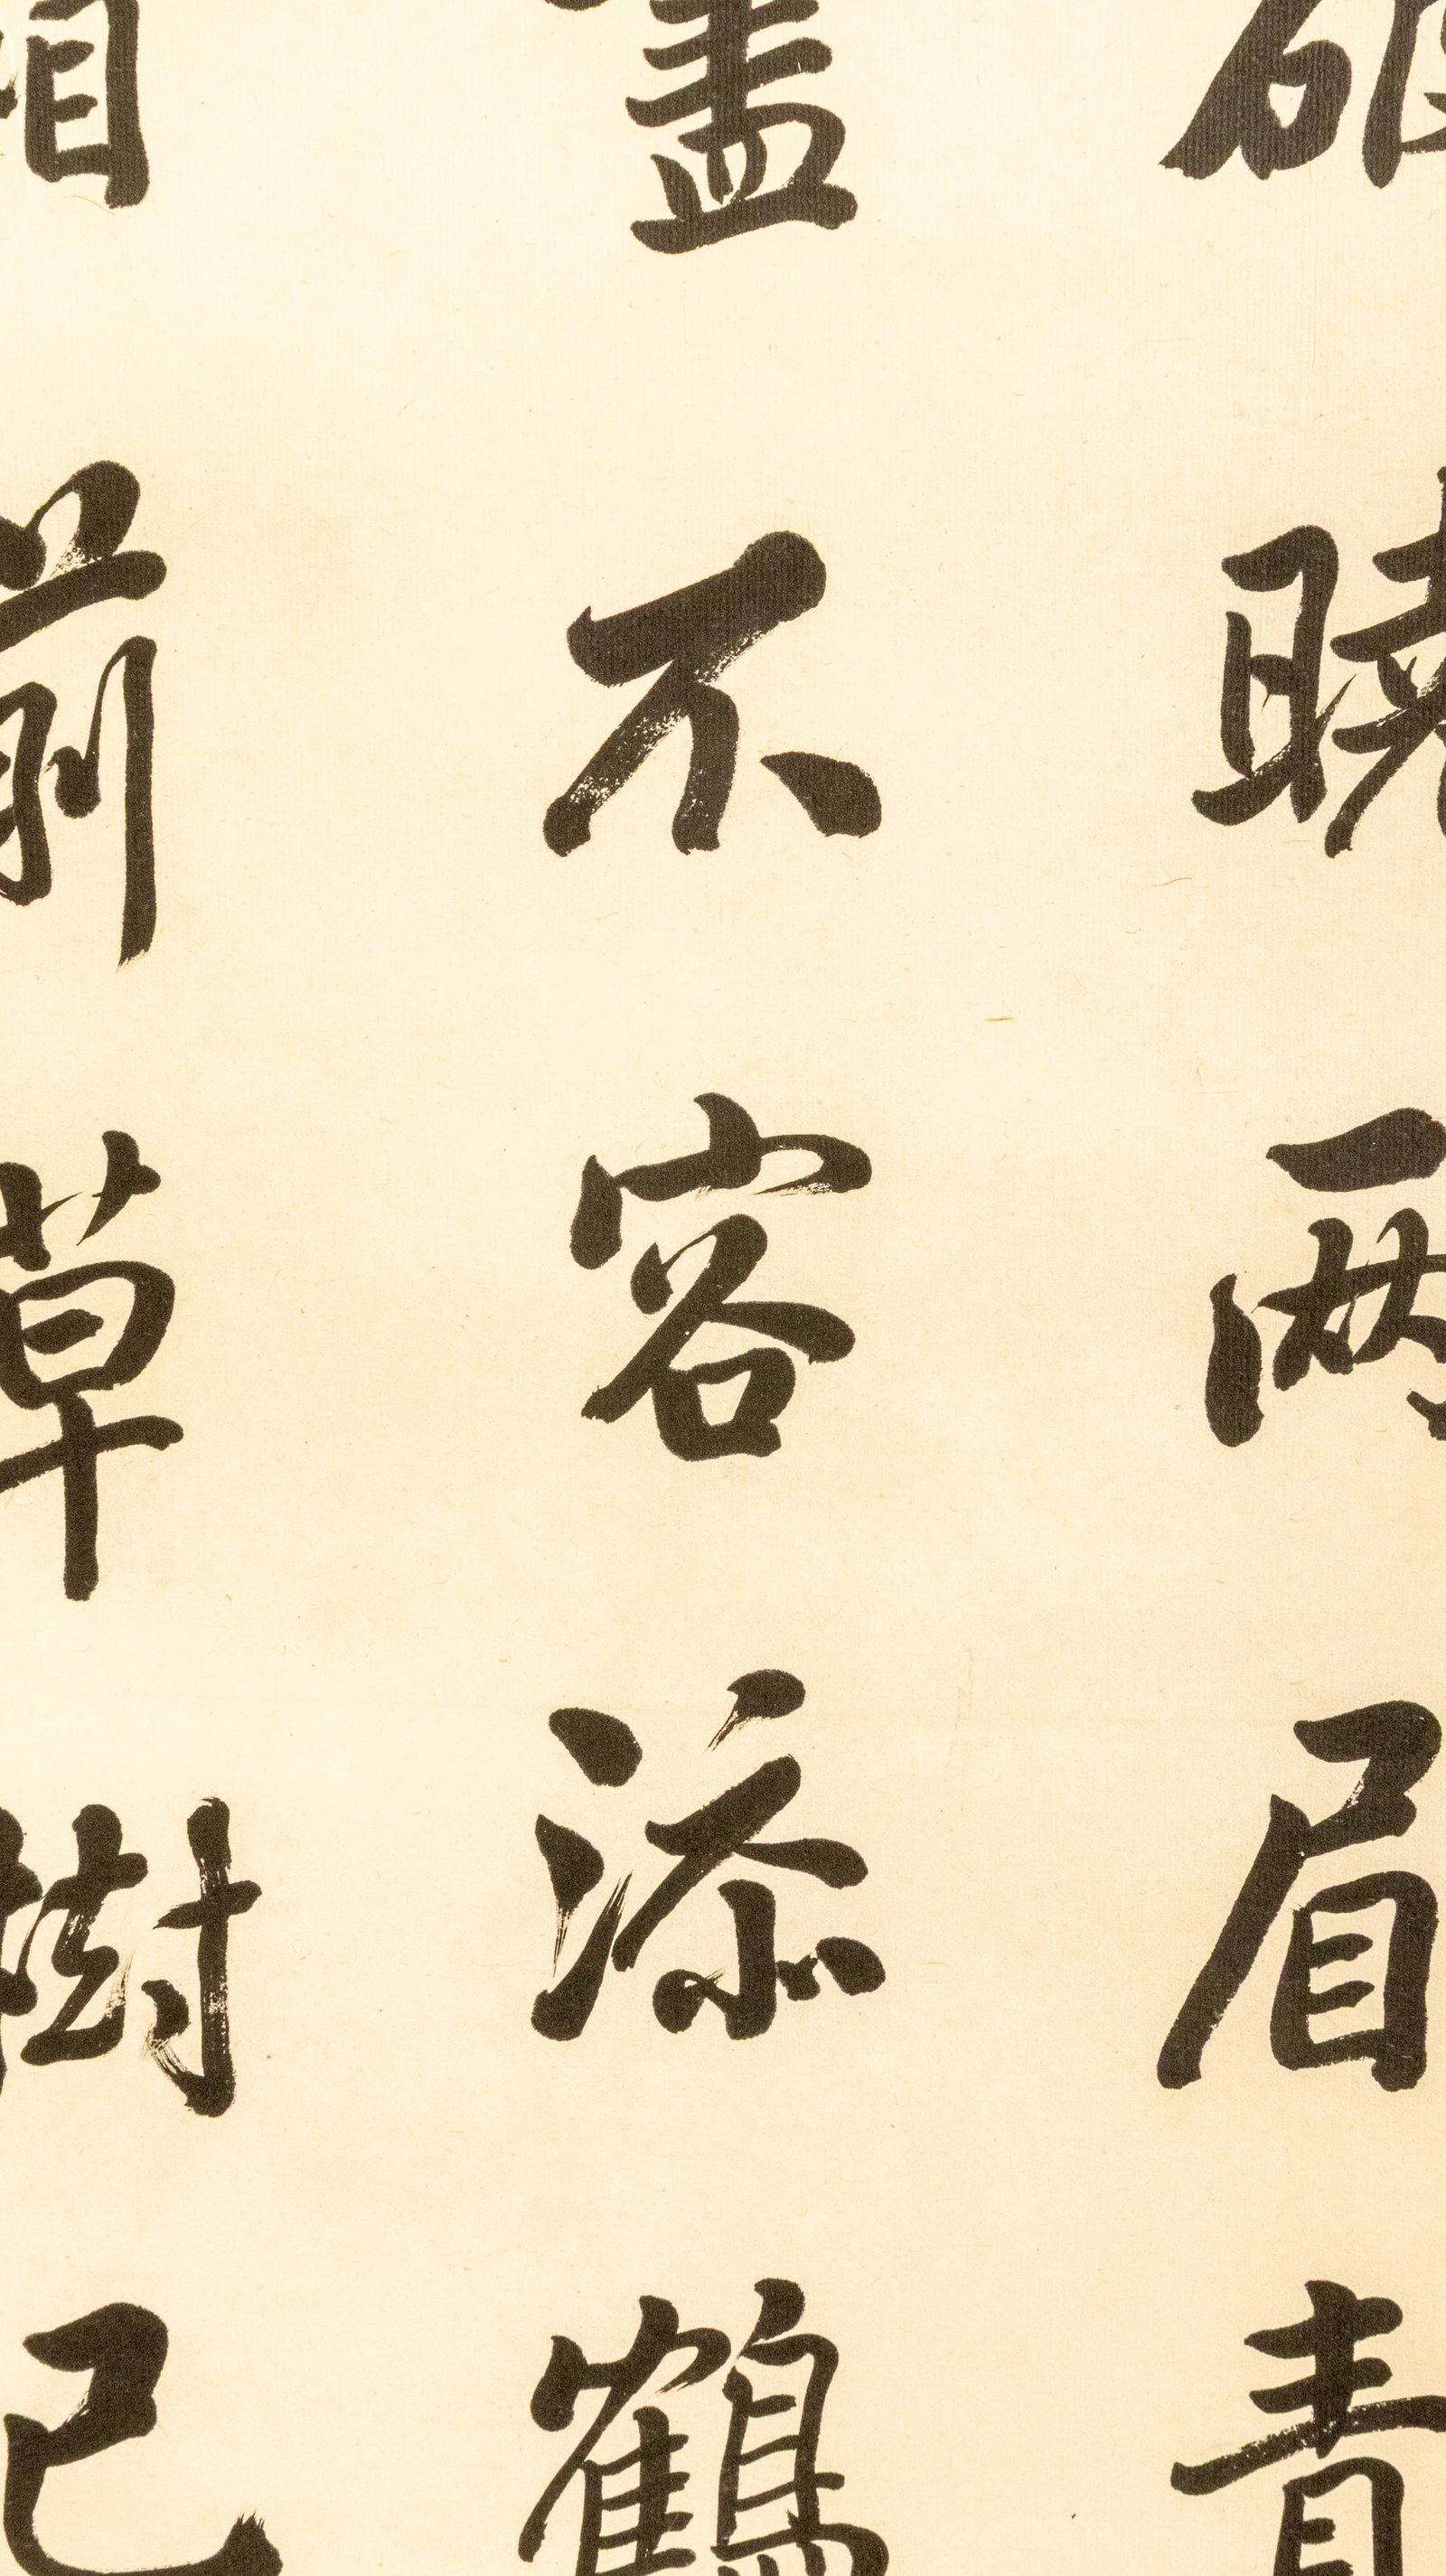 破曉兩眉青
盡不容添鶴
前草樹已